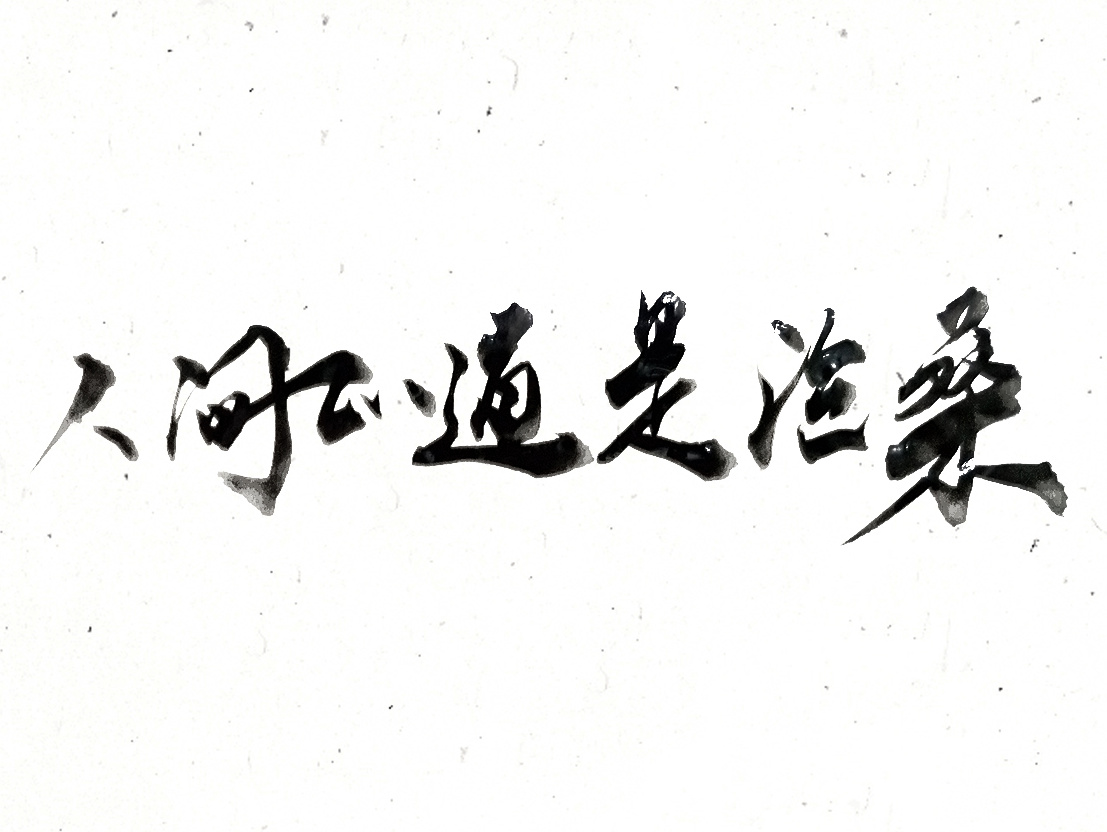 人间正道是沧桑